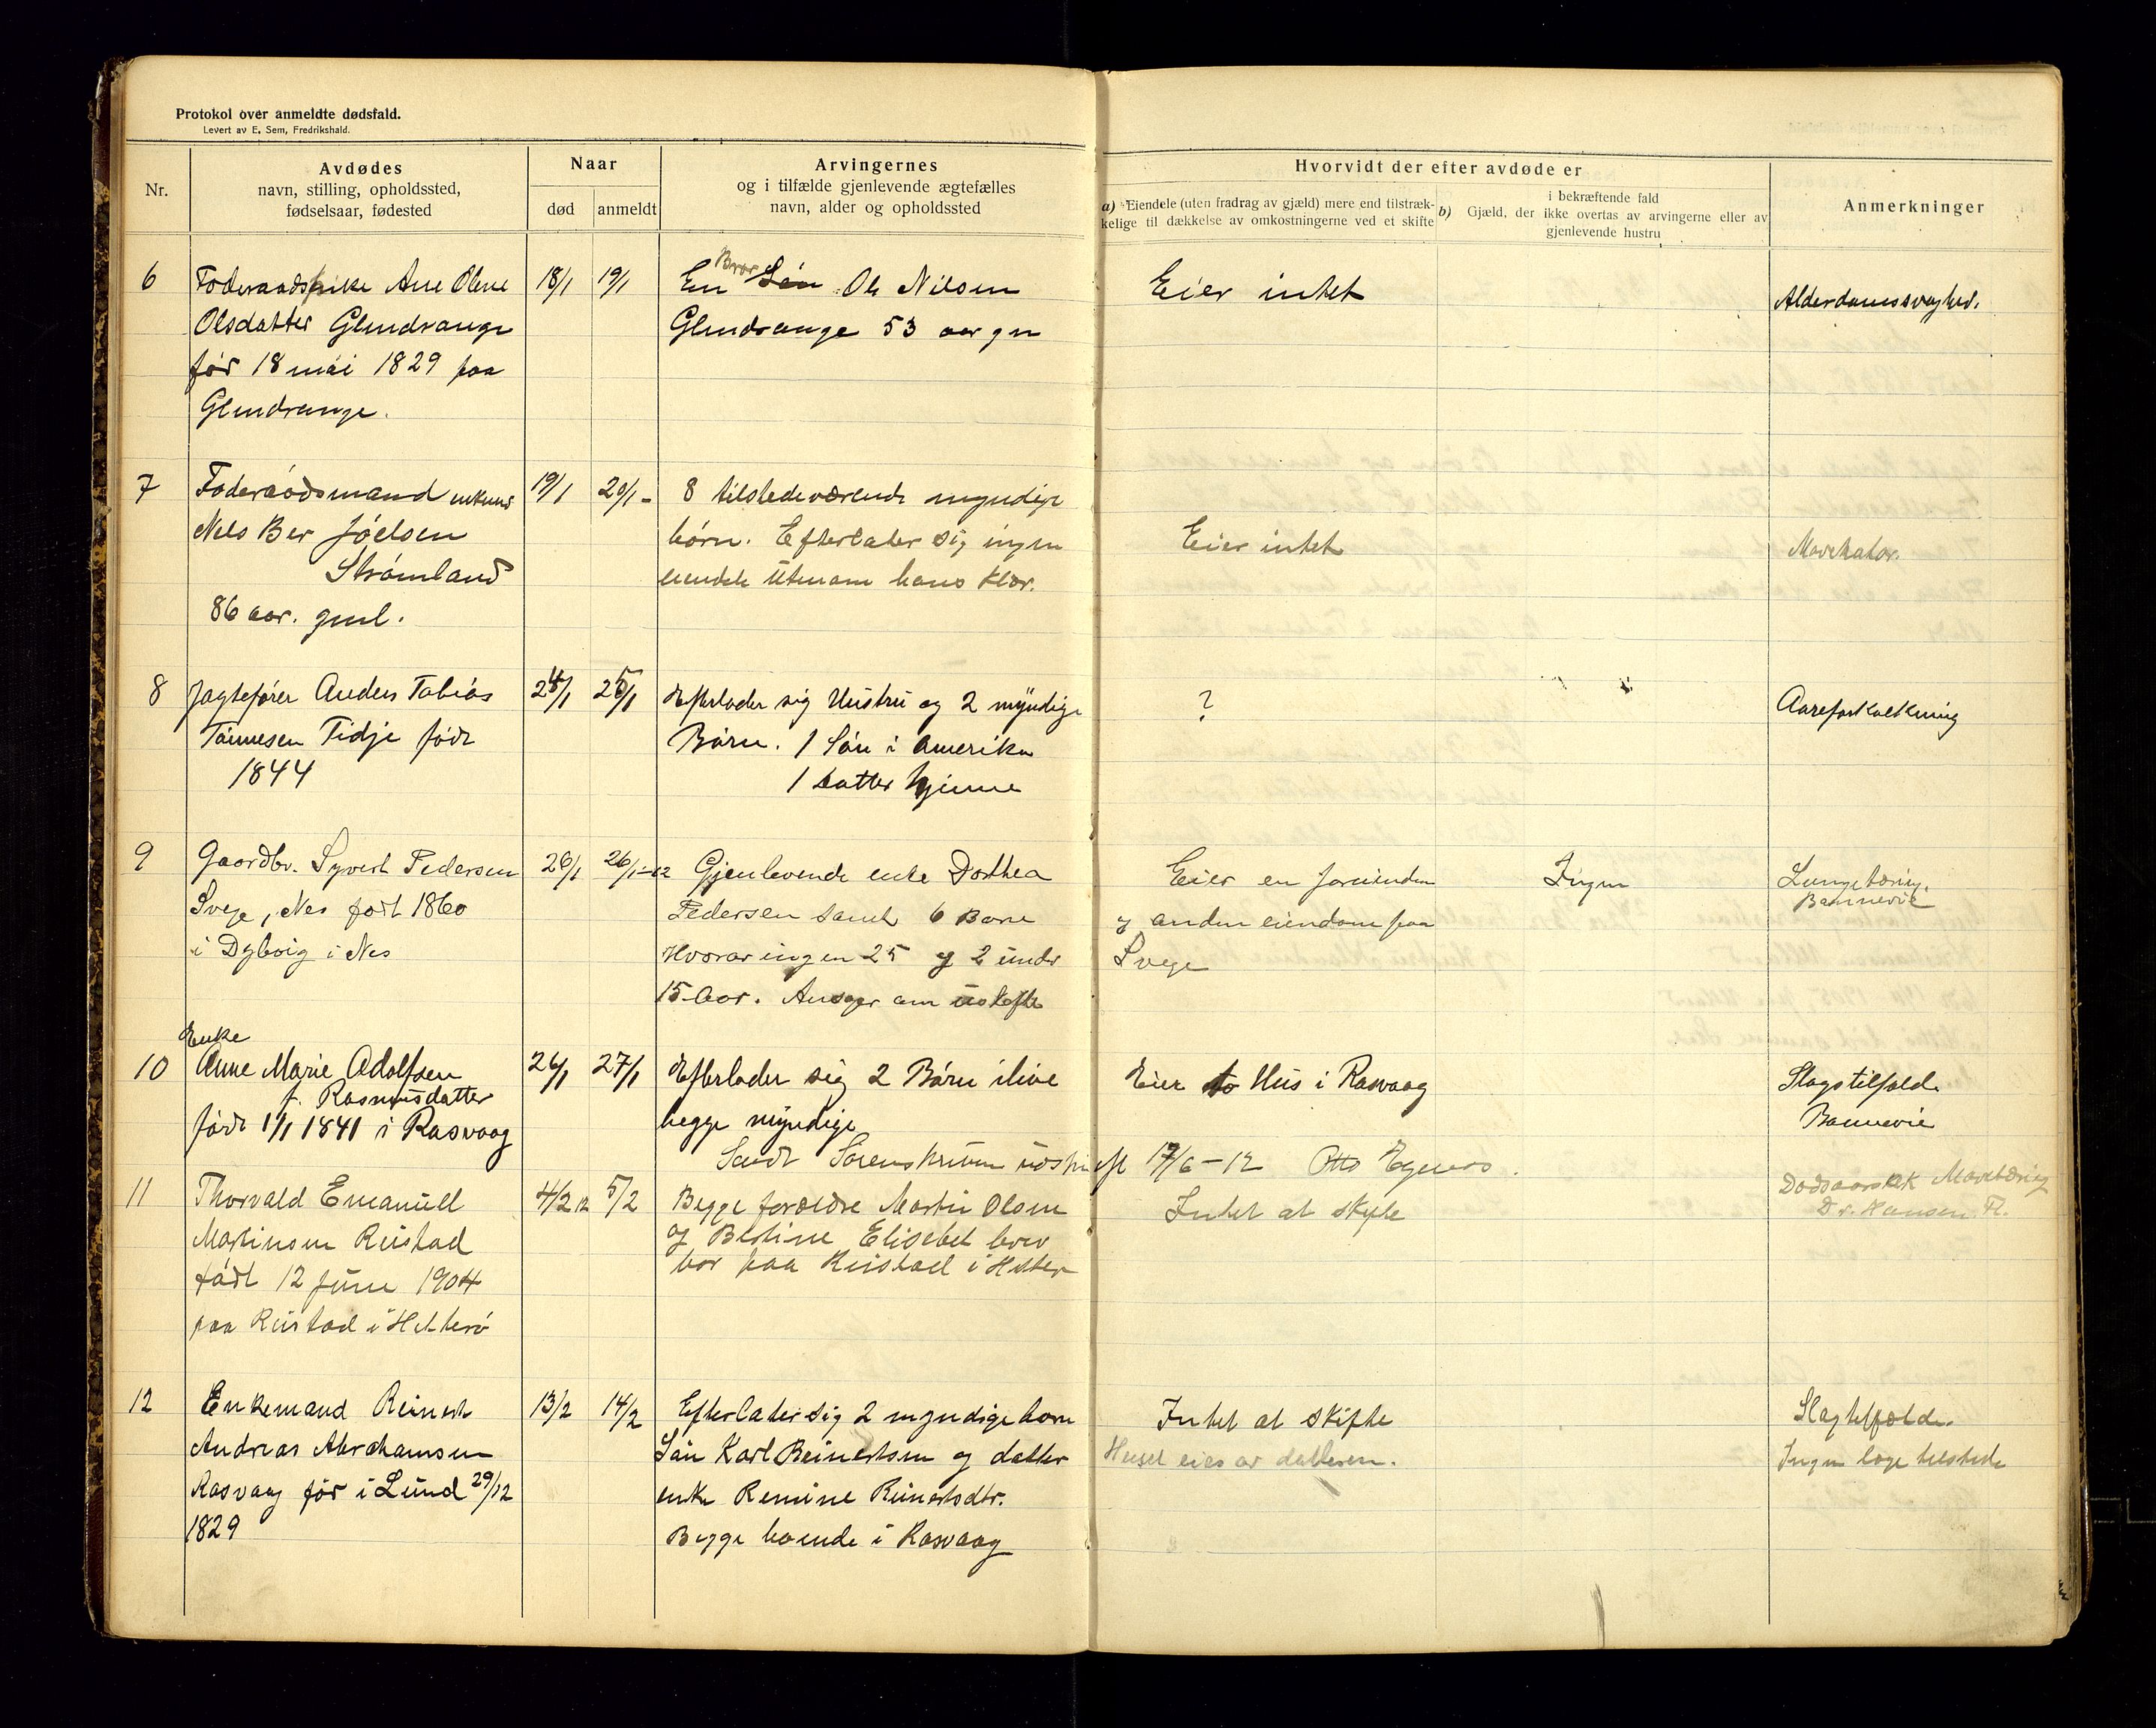 Protokol over anmeldte dødsfald.
Levert av E. Sem, Fredrikshald.
Nr.
Avdødes
navn, stilling, opholdssted,
fødselsaar, fødested
Naar
død
anmeldt
Arvingernes
og i tilfælde gjenlevende ægtefælles
navn, alder og opholdssted
Hvorvidt der efter avdøde er
a) Eiendele (uten fradrag av gjæld) mere end tilstræk-
kelige til dækkelse av omkostningerne ved et skifte
b) Gjæld, der i bekræftende fald
ikke overtas av arvingerne eller av
gjenlevende hustru
Anmerkninger
6
Ane Olene
Olsdatter Glendrange
før 18 mai 1829 paa
Glendrange.
18/1
19/1
Bror
En Søn Ole Nilsen
Glendrange 53 aar gm
Eier intet
Alderdomssvaghed.
7
Føderaadsmand enkem
Nels Ber Jøelsen
Strømland
86 aar. gml.
19/1
20/1 -
8 tilstedeværende myndige
børn. Efterlater sig ingen
eiendele utenom hans klær.
Eier intet
Mavekatar.
8
Jagtefører Anders Tobias
Tønnesen Tidje født
1844
24/1
25/1
Efterlader sig Hustru og 2 myndige
Børn. 1 Søn i Amerika
1 datter hjemme
?
Aareforkalkning
9
Gaardbr. Syvert Pedersen
Svege, Nes født 1860
i Dybvig i Nes
26/1
26/1-12
Gjenlevende enke Dorthea
Pedersen samt 6 Børn
Hvorav ingen 25 og 2 under
15 Aar. Ansøger om uskifte
Eier en
og anden eiendom paa
Svege
Ingen
Lungetæring.
Bannevie
10
Enke
Anne Marie Adolfsen
f. Rasmusdatter
født 1/1 1841 i Rasvaag
26/1
27/1
Efterlader sig 2 Børn ilive
begge myndige
Sendt Sorenskriveren udskrift 17/6-12 Otto Egenes.
Eier to Hus i Rasvaag
Slagtilfælde
Bannevie
11
Thorvald Emanuell
Martinsen Reistad
født 12 June 1904
paa Reistad i Hitterø
4/2 12
5/2
Begge forældre Martin Olsen
og Bertine Elisebet lever
bor paa Reistad i Hitter
Intet at skifte
Dødsaarsak Mavetæring
Dr. Hansen. Fl.
12
Enkemand Reinert
Andreas Abrahamsen
Rasvaag før i Lund 29/12
1829
13/2
14/2
Efterlater sig 2 myndige børn
Søn Karl Reinertsen og datter
enke Remine Reinertsdtr.
Begge boende i Rasvaag
Intet at skifte
Huset eies av datteren.
Slagtilfælde.
Ingen læge tilstede